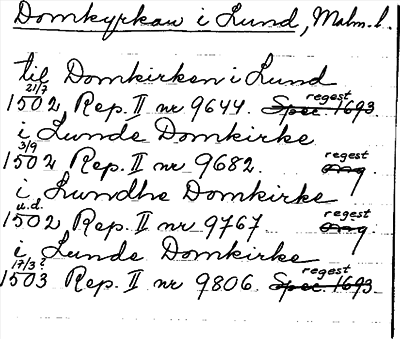 Domkyrkan i Lund, Malm. l.
til Domkirken i Lund
21/7
1502 Rep. II nr 9644. Spec. 1693 regest
i Lunde Domkirke
3/9
1502 Rep. II nr 9682. orig regest
i Lundhe Domkirke
u.d.
1502 Rep. II nr 9767 orig. regest
i Lunde Domkirke
17/3?
1503 Rep. II nr 9806. Spec. 1693 regest